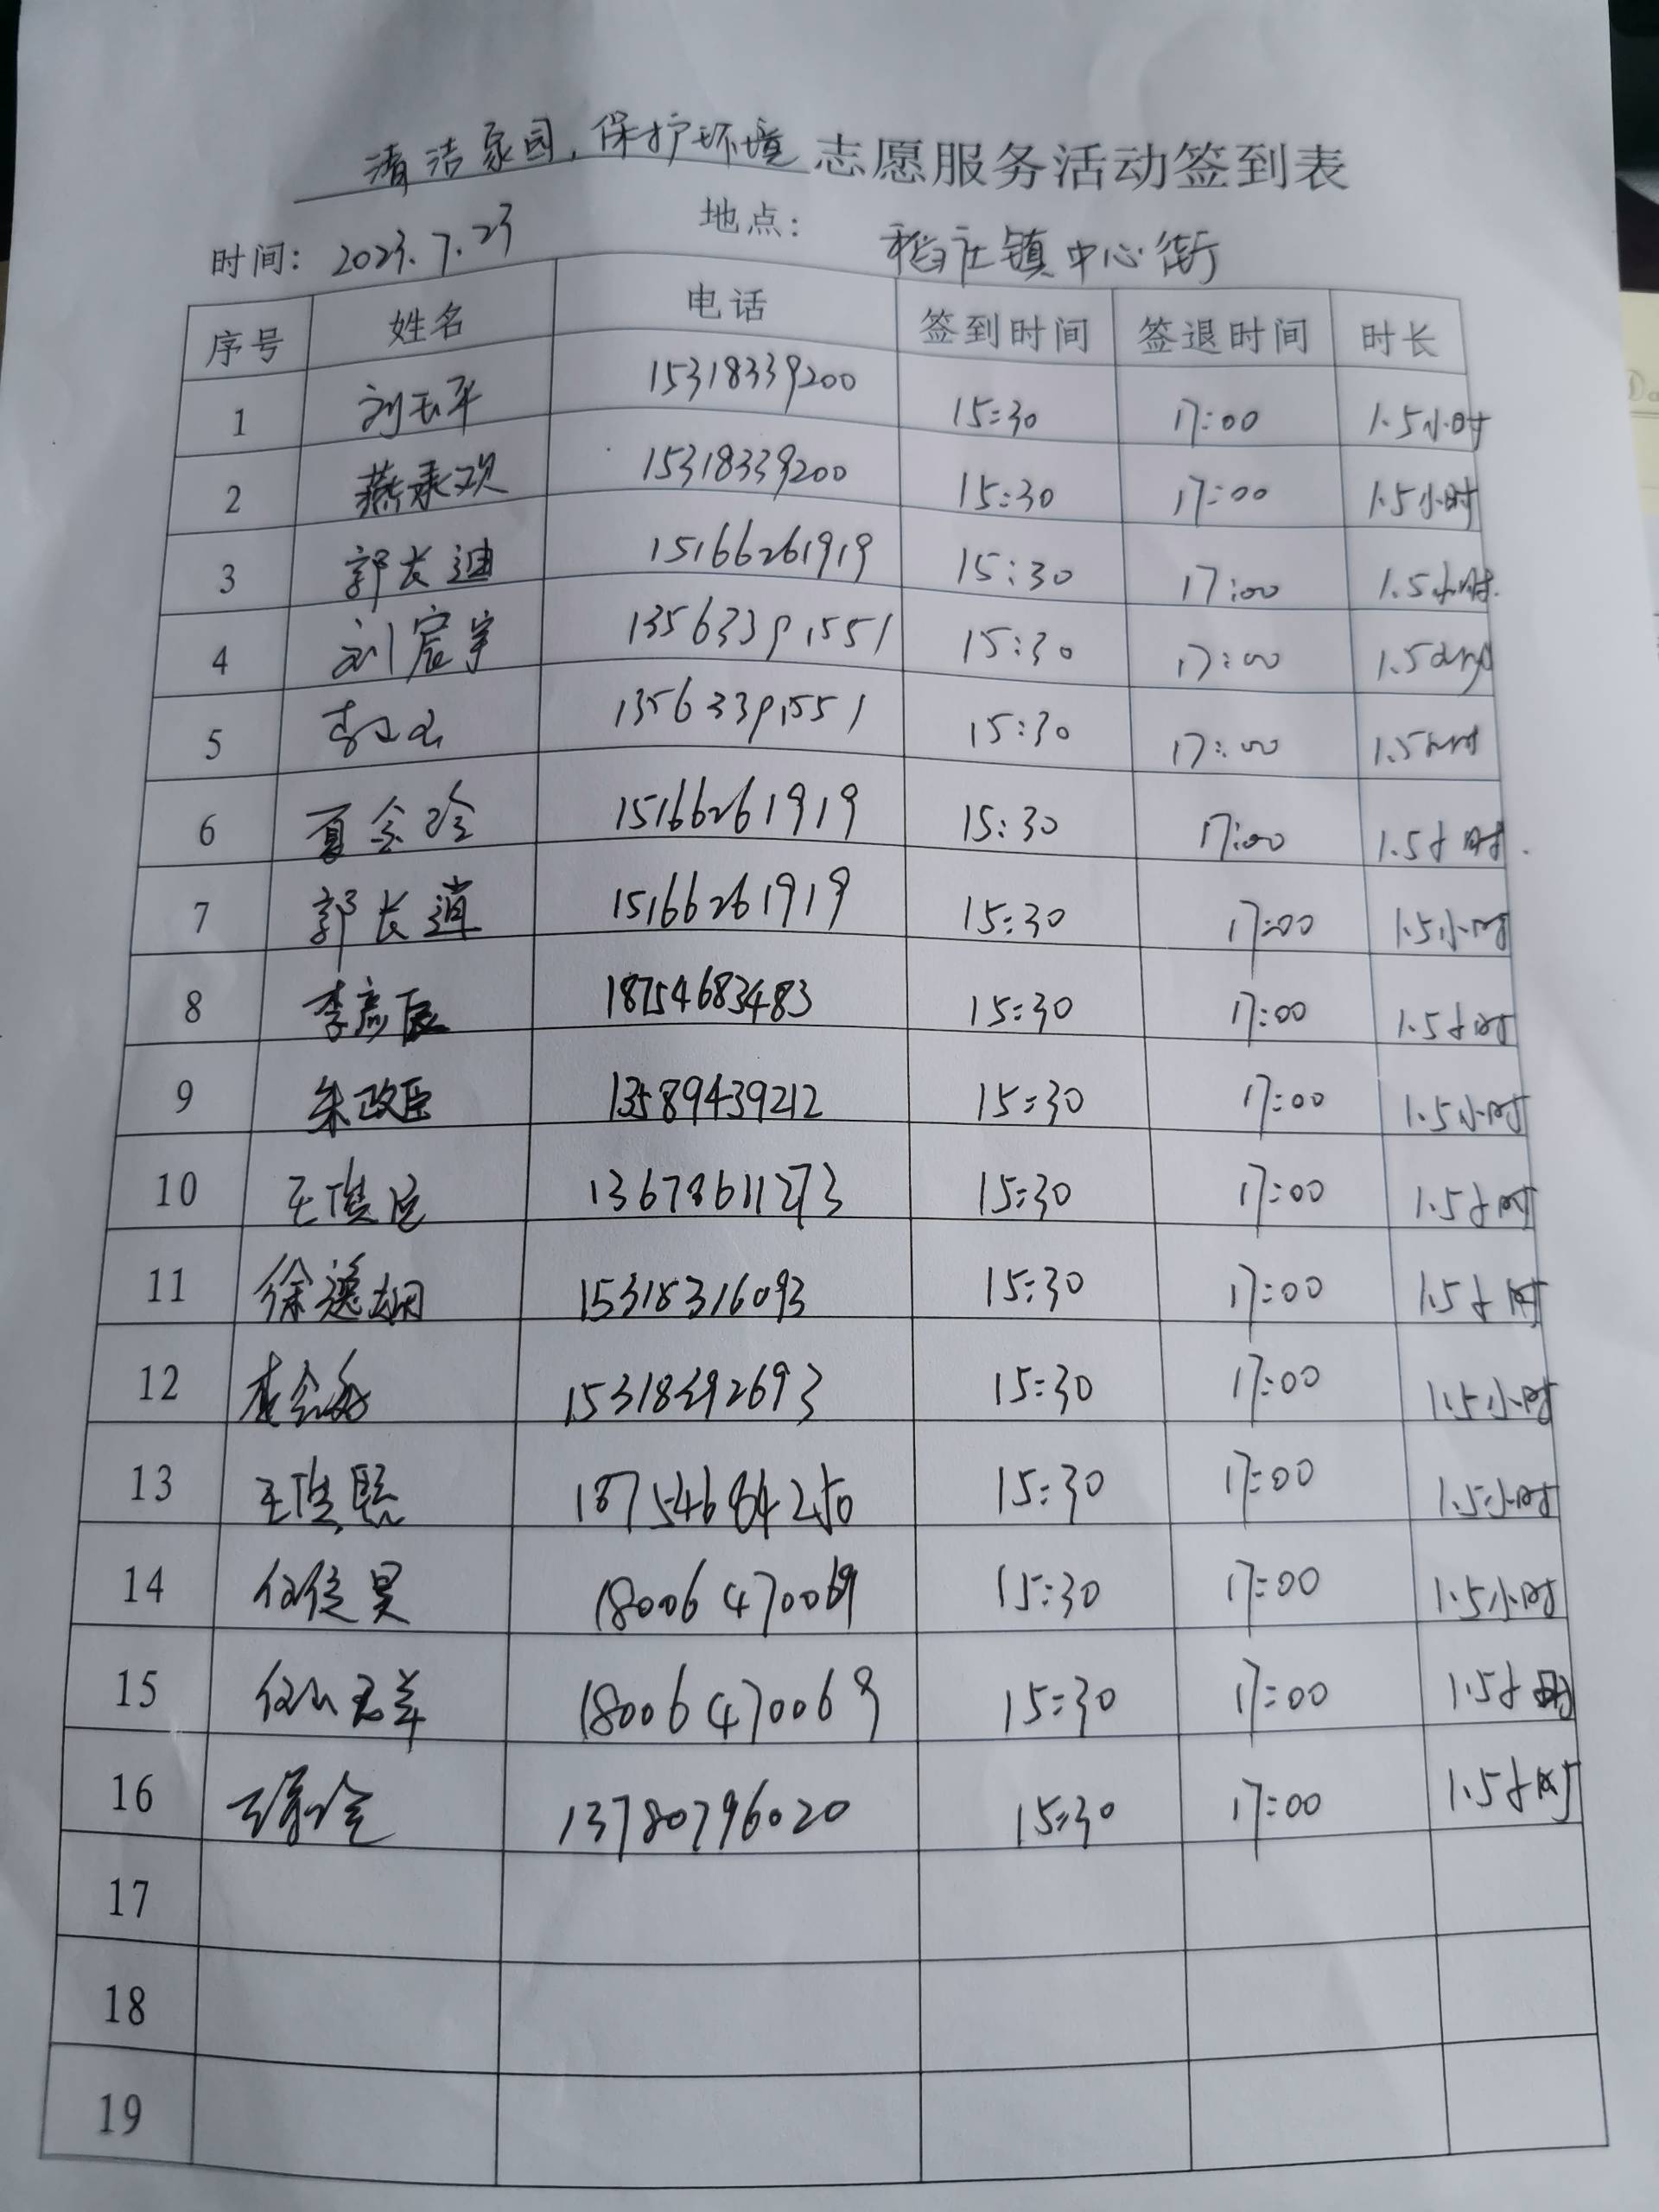 清洁家园,保护环境志愿服务活动签到表
时间: 2023.7.23 地点: 稻庄镇中心街
序号 姓名 电话 签到时间 签退时间 时长
1 刘玉平 15318339200 15:30 17:00 1.5小时
2 燕承欢 15318339200 15:30 17:00 1.5小时
3 郭长迪 15166261919 15:30 17:00 1.5小时.
4 刘宸宇 13563391551 15:30 17:00 1.5小时
5 13563391551 15:30 17:00 1.5小时
6 夏会玲 15166261919 15:30 17:00 1.5小时.
7 郭长道 15166261919 15:30 17:00 1.5小时
8 李彦辰 18754683483 15:30 17:00 1.5小时
9 朱政臣 13589439212 15:30 17:00 1.5小时
10 13678611273 15:30 17:00 1.5小时
11 徐逸娴 15318316093 15:30 17:00 1.5小时
12 15318392693 15:30 17:00 1.5小时
13 18754684250 15:30 17:00 1.5小时
14 18006470069 15:30 17:00 1.5小时
15 18006470069 15:30 17:00 1.5小时
16 13780796020 15:30 17:00 1.5小时
17
18
19